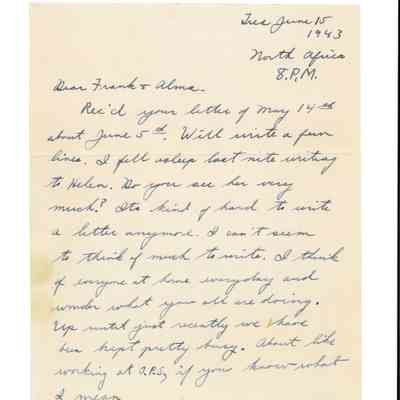 Tues June 15
1943
North Africa
8.P.M.
Dear Frank & Alma.
Rec'd your letter of May 14th
about June 5th. Will write a few
lines. I fell asleep last nite writing
to Helen. Do you see her very
much? Its kind of hard to write
a letter anymore. I can't seem
to think of much to write. I think
of everyone at home everyday and
wonder what you all are doing.
Up until just recently we have
been kept pretty busy. About like
working at O.P.S, if you know what
I mean